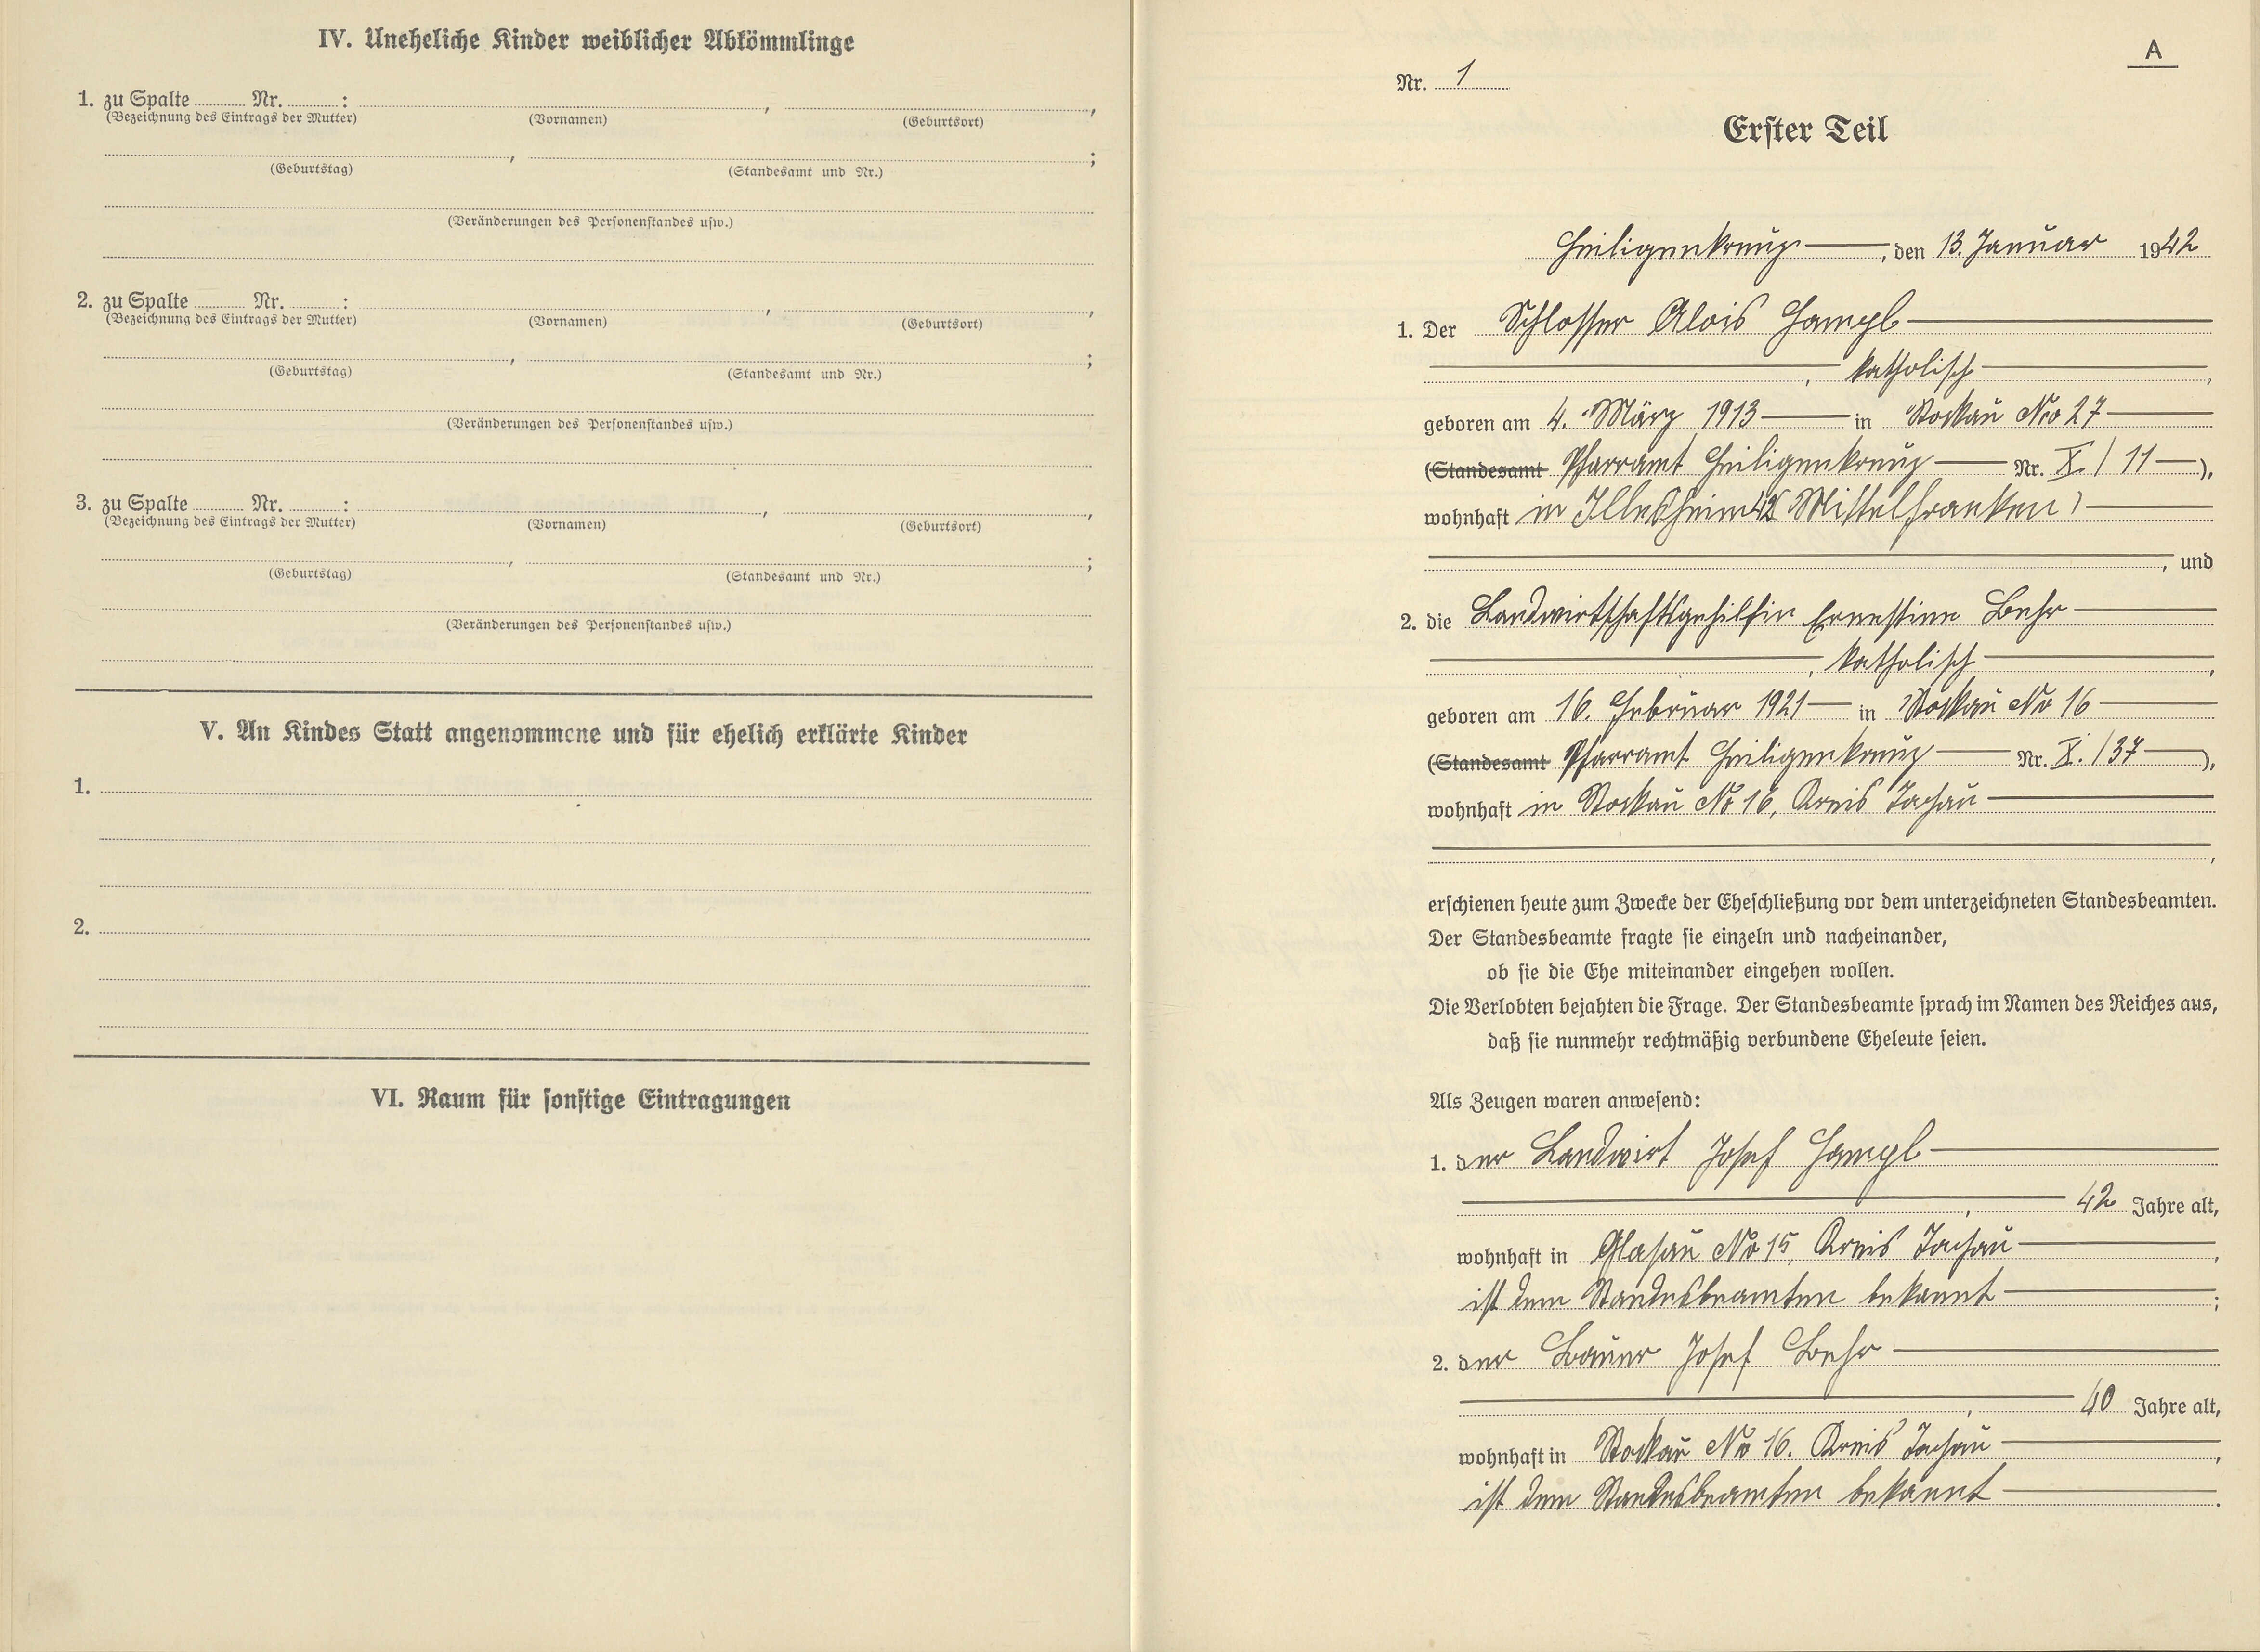 IV. Uneheliche Kinder weiblicher Abkömmlinge
1. zu Spalte ........ Nr. ........ : , ,
(Bezeichnung des Eintrags der Mutter) (Vornamen) (Geburtsort)
, ;
(Geburtstag) (Standesamt und Nr.)
(Veränderungen des Personenstandes usw.)
2. zu Spalte ........ Nr. ........ : , ,
(Bezeichnung des Eintrags der Mutter) (Vornamen) (Geburtsort)
, ;
(Geburtstag) (Standesamt und Nr.)
(Veränderungen des Personenstandes usw.)
3. zu Spalte ........ Nr. ........ : , ,
(Bezeichnung des Eintrags der Mutter) (Vornamen) (Geburtsort)
, ;
(Geburtstag) (Standesamt und Nr.)
(Veränderungen des Personenstandes usw.)
V. An Kindes Statt angenommene und für ehelich erklärte Kinder
1.
2.
VI. Raum für sonstige Eintragungen
A
Nr. 1
Erster Teil
Heiligenkreuz, den 13. Januar 1942
1. Der Schlosser Alois Hampl
, katholisch,
geboren am 4. März 1913 in Stockau No 27
(Standesamt Pfarramt Heiligenkreuz Nr. X / 11),
wohnhaft in Illesheim 42 Mittelfranken)
, und
2. die Landwirtschaftsgehilfin Ernestine Behr
, katholisch,
geboren am 16. Februar 1921 in Stockau No 16
(Standesamt Pfarramt Heiligenkreuz Nr. X. / 37),
wohnhaft in Stockau No 16, Kreis Tachau
,
erschienen heute zum Zwecke der Eheschließung vor dem unterzeichneten Standesbeamten.
Der Standesbeamte fragte sie einzeln und nacheinander,
ob sie die Ehe miteinander eingehen wollen.
Die Verlobten bejahten die Frage. Der Standesbeamte sprach im Namen des Reiches aus,
daß sie nunmehr rechtmäßig verbundene Eheleute seien.
Als Zeugen waren anwesend:
1. der Landwirt Josef Hampl
, 42 Jahre alt,
wohnhaft in Glasau No 15, Kreis Tachau,
ist dem Standesbeamten bekannt;
2. der Bauer Josef Behr
, 40 Jahre alt,
wohnhaft in Stockau No 16. Kreis Tachau,
ist dem Standesbeamten bekannt.